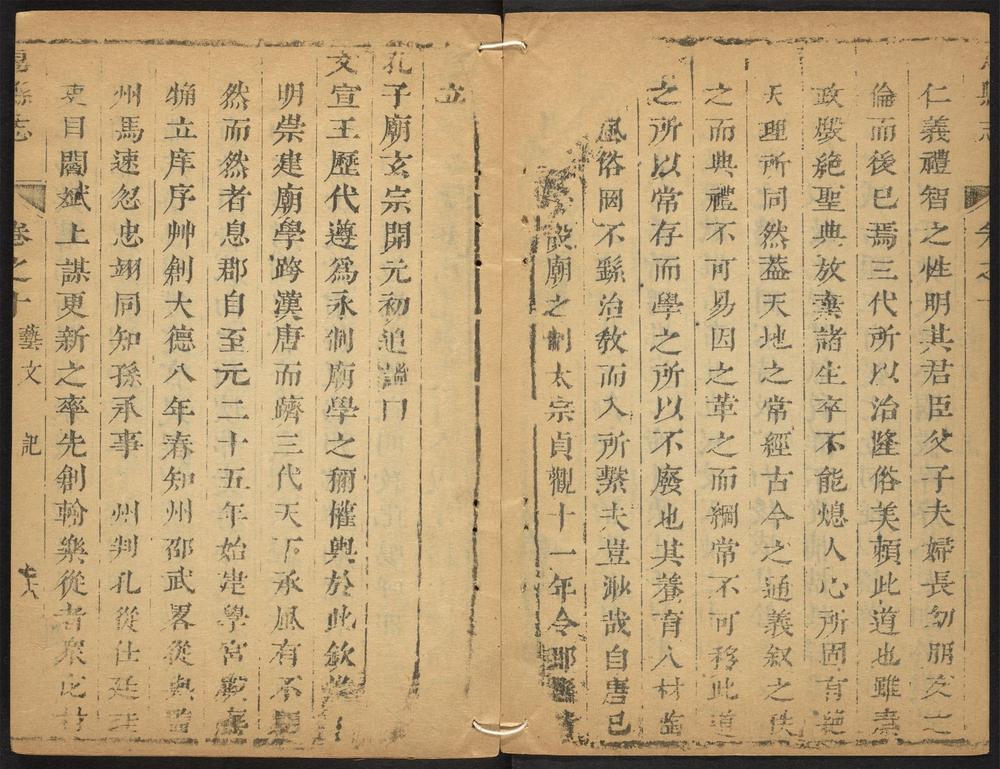 仁義禮智之性明其君臣父子夫婦長幼朋友之
倫而後已焉三代所以治隆俗美頼此道也雖秦
政燬絶聖典放棄諸生卒不能熄人心所固有
天理所同然葢天地之常經古今之通義叙之秩
之而典禮不可易因之革之而綱常不可移此道
之所以常存而學之所以不廢也其養育人材
風俗罔不繇治教而入所繫夫豈渺哉自唐已
設廟之制太宗貞觀十一年令郡縣
立
孔子廟玄宗開元初追諡曰
文宣王歷代遵爲永制廟學之稱催興於此欽惟
明崇建廟學跨漢唐而躋三代天下承風有不
然而然者息郡自至元二十五年始建學宮
立庠序艸創大德八年春知州邵武畧從
州馬速忽忠翊同知孫承事 州判孔從仕廷
吏目閻斌上謀更新之率先創輸樂從者衆
息縣志 卷之十 藝文 記